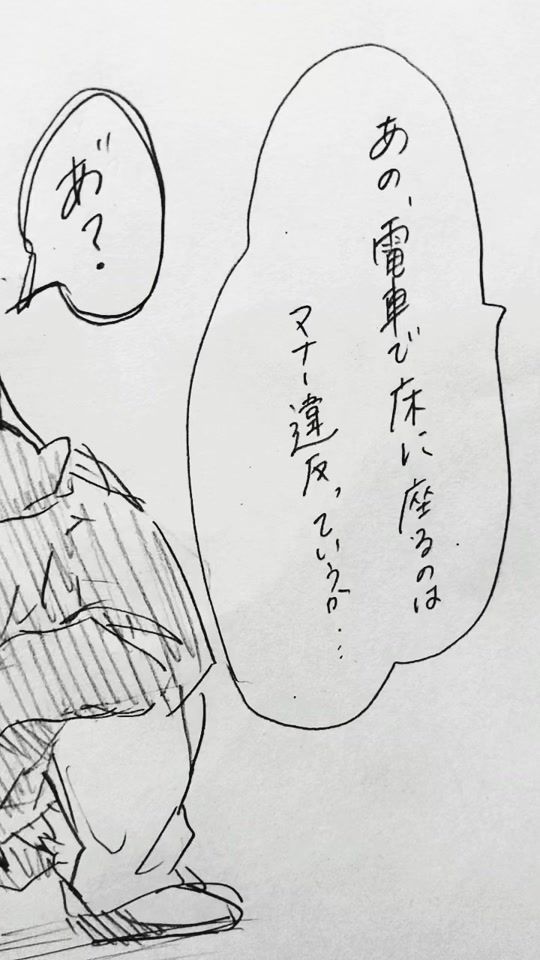 あの、電車で床に座るのは
マナー違反っていうか…
あ゛？